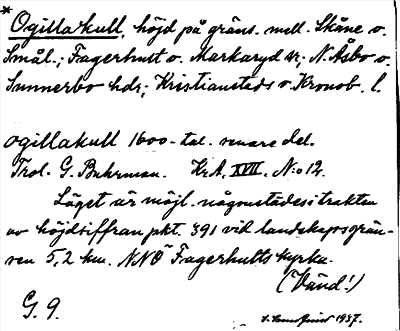 *Ogillakull, höjd på gräns. mell. Skåne o.
Smål.; Fagerhult o. Markaryd sr; N. Åsbo o.
Sunnerbo hdr; Kristianstads o. Kronob. l.
ogillakull 1600-tal. senare del.
Trol. G. Buhrman. KrA. XVII. N:o 12.
Läget är möjl. någonstädes i trakten
av höjdsiffran pkt. 391 vid landskapsgrän-
sen 5,2 km. NNÖ Fagerhults kyrka.
(Vänd!)
G. 9.
1937.